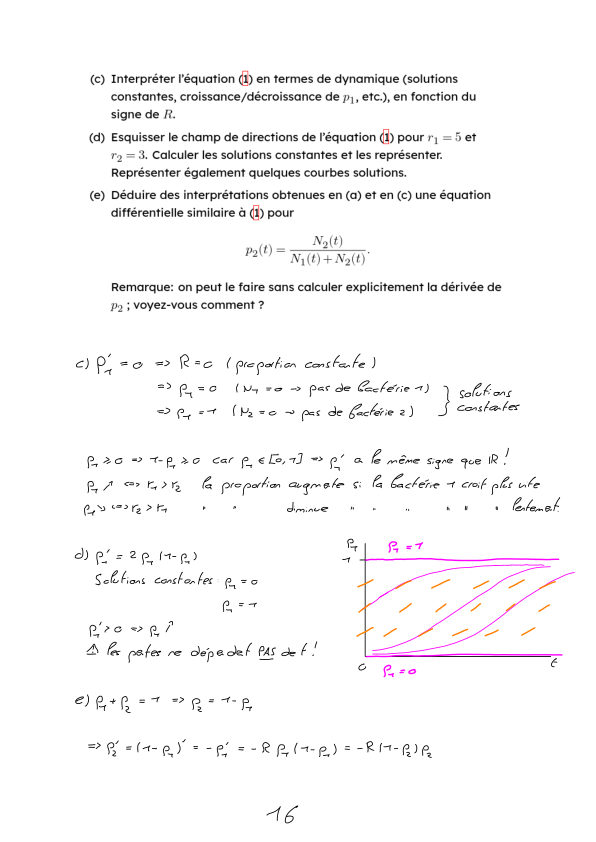 (c) Interpréter l'équation (1) en termes de dynamique (solutions
constantes, croissance/décroissance de p₁, etc.), en fonction du
signe de R.
(d) Esquisser le champ de directions de l'équation (1) pour r₁ = 5 et
r₂ = 3. Calculer les solutions constantes et les représenter.
Représenter également quelques courbes solutions.
(e) Déduire des interprétations obtenues en (a) et en (c) une équation
différentielle similaire à (1) pour
p₂(t) = N₂(t) / (N₁(t) + N₂(t)).
Remarque: on peut le faire sans calculer explicitement la dérivée de
p₂ ; voyez-vous comment ?
c) p₁' = 0 => R = 0 (proportion constante)
=> p₁ = 0 (N₁ = 0 → pas de bactérie 1) } solutions
=> p₁ = 1 (N₂ = 0 → pas de bactérie 2) constantes
p₁ ≥ 0 => 1-p₁ ≥ 0 car p₁ ∈ [0,1] => p₁' a le même signe que R !
p₁ ↗ <=> r₁ > r₂ la proportion augmente si la bactérie 1 croit plus vite
p₁ ↘ <=> r₂ > r₁ " " diminue " " " " " lentement.
d) p₁' = 2 p₁ (1-p₁)
Solutions constantes : p₁ = 0
p₁ = 1
p₁' > 0 => p₁ ↗
⚠ les pentes ne dépendent PAS de t !
p₁
p₁ = 1
1
0
p₁ = 0
t
e) p₁ + p₂ = 1 => p₂ = 1 - p₁
=> p₂' = (1-p₁)' = -p₁' = -R p₁ (1-p₁) = -R (1-p₂) p₂
16